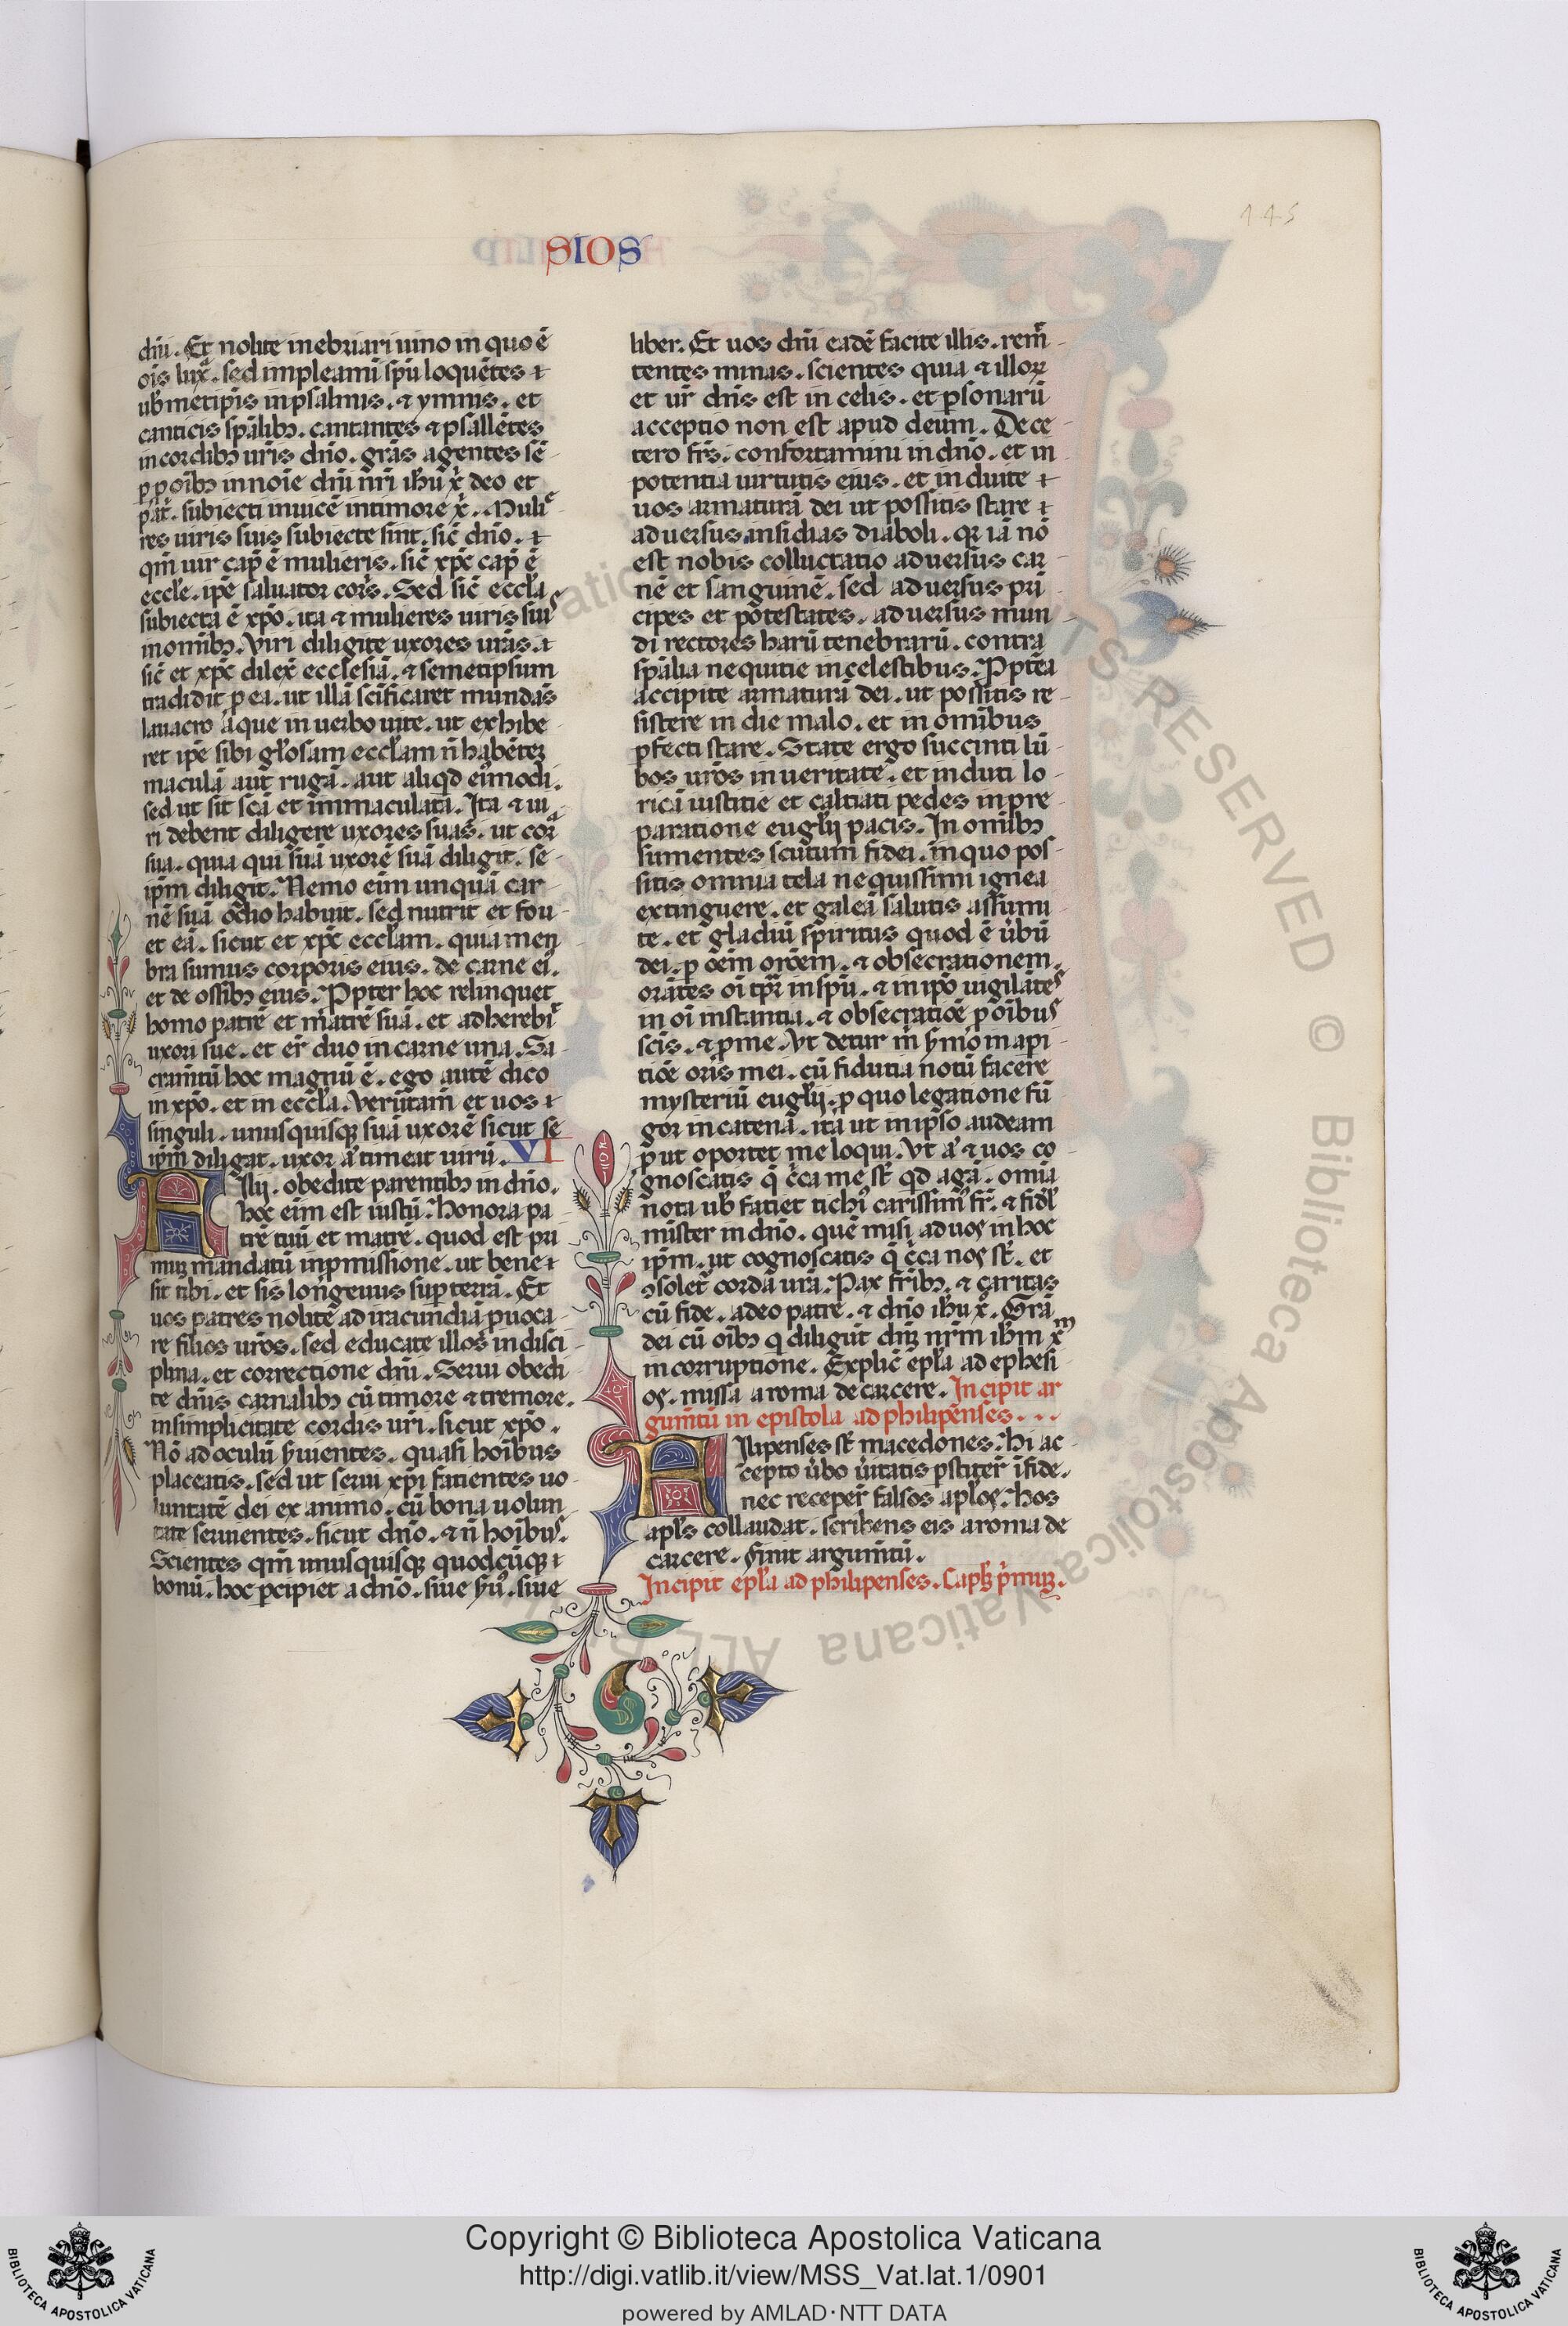 445
SIOS
dñi. Et nolite inebriari uino in quo ē
ois lux̄. sed impleami sp̄u loquētes ⁊
ub̄ metip̄is in psalmis. ⁊ ymnis. et
canticis sp̄alibꝫ. cantantes ⁊ psallētes
in cordibꝫ ur̄is dn̄o. gr̄as agentes sē
p ꝓ oībꝫ in noīe dn̄i nr̄i ih̄u x̄ deo et
pat̄. subiecti inuicē in timore x̄. Muli
res uiris suis subiecte sint. sic̄ dn̄o. ⁊
qm̄ uir cap̄ ē mulieris. sic̄ xp̄c cap̄ ē
eccl̄e. ip̄e saluator cor̄s. Sed sic̄ eccl̄a
subiecta ē xp̄o. ita ⁊ mulieres uiris suis
in om̄ibꝫ. Viri diligite uxores ur̄as. ⁊
sic̄ et xp̄c dilex̄ ecclesiā. ⁊ semetipsum
tradidit ꝓ ea. ut illā sc̄ificaret mundās
lauacro aque in uerbo uite. ut exhibe
ret ip̄e sibi gl̄osam eccl̄am n̄ habētez
maculā aut rugā. aut aliqd̄ eiꝰmodi.
sed ut sit sc̄a et immaculata. Ita ⁊ ui
ri debent diligere uxores suas. ut cor̄
sua. quia qui suā uxorē suā diligit. se
ip̄m diligit. Nemo eīm unquā car
nē suā odio habuit. sed nutrit et fou
et eā. sicut et xp̄c eccl̄am. quia men
bra sumus corporis eius. de carne eiꝰ.
et de ossibꝫ eius. Ppter hoc relinquet
homo patrē et matrē suā. et adherebi
uxori sue. et er̄ duo in carne una. Sa
cram̄tū hoc magnū ē. ego autē dico
in xp̄o. et in eccl̄a. Verūtam̄ et uos ⁊
singuli. unusquisqꝫ suā uxorē sicut se
ip̄m diligat. uxor a̅ timeat uirū. VI
Filij. obedite parentibꝫ in dn̄o.
hoc eīm est iustū. Honora pa
trē tuū et matrē. quod est pri
muꝫ mandatū in ꝓmissione. ut bene ⁊
sit tibi. et sis longeuus suꝑ terrā. Et
uos patres nolite ad iracundiā ꝓuoca
re filios ur̄os. sed educate illos in disci
plina. et correctione dn̄i. Serui obedi
te dn̄is carnalibꝫ cū timore ⁊ tremore.
in simplicitate cordis ur̄i. sicut xp̄o.
Nō ad oculū s̄uientes. quasi hoībus
placeatis. sed ut serui xp̄i fatientes uo
luntatē dei ex animo. cū bona uolun
tate seruientes. sicut dn̄o. ⁊ n̄ hoībuꝰ.
Scientes qm̄ unusquisqꝫ quodcūqꝫ ⁊
bonū. hoc ꝑcipiet a dn̄o. siue s̄uꝰ. siue
liber. Et uos dn̄i eadē facite illis. remi
tentes minas. scientes quia ⁊ illoꝝ
et ur̄ dn̄s est in celis. et ꝑsonarū
acceptio non est apud deum. De ce
tero fr̄s. confortamini in dn̄o. et in
potentia uirtutis eius. et induite ⁊
uos armaturā dei ut possitis stare ⁊
aduersus insidias diaboli. qr iā nō
est nobis colluctatio aduersus car
nē et sanguinē. sed aduersus prī
cipes et potestates. aduersus mun
di rectores harū tenebrarū. contra
sp̄alia nequitie in celestibus. Ppt̄ea
accipite armaturā dei. ut possitis re
sistere in die malo. et in omībus
ꝑfecti stare. State ergo succinti lū
bos ur̄os in ueritate. et induti lo
ricā iustitie et caltiati pedes in pre
paratione eugl̄ij pacis. In omībꝫ
sumentes scutum fidei. in quo pos
sitis omnia tela nequissimi ignea
extinguere. et galeā salutis assumi
te. et gladiū spiritus quod ē u̇bū
dei. ꝑ oēm or̄oem. ⁊ obsecrationem
orātes oī tp̄r in sp̄u. ⁊ in ip̄o uigilātes
in oī instantia. ⁊ obsecratiōē ꝓ oībuꝰ
sc̄is. ⁊ ꝓ me. Vt detur m̄ s̄mo in aꝑi
tiōe oris mei. cū fidutia notū facere
mysteriū eugl̄ij. ꝓ quo legatione fū
gor in catenā. ita ut in ip̄so audeam
ꝓut oportet me loqui. Vt a̅ ⁊ uos co
gnoscatis q̄ c̄ca me st̄. qd̄ agā. omīa
nota ub̄ fatiet tichiꝰ carissimꝰ fr̄. ⁊ fidel̄
mīster in dn̄o. quē misi ad uos in hoc
ip̄m. ut cognoscatis q̄ c̄ca nos st̄. et
ꝯsolet̄ corda ur̄a. Pax fr̄ibꝫ. ⁊ caritas
cū fide. a deo patre. ⁊ dn̄o ih̄u x̄. Gr̄a
dei cū oībꝫ q diligūt dn̄ꝫ nr̄m ih̄m x̄m
in corruptione. Explic̄ ep̄la ad ephesi
os. missa a roma de carcere. Incipit ar
gum̄tū in epistola ad philipenses. . . .
Filipenses st̄ macedones. Hi ac
cepto u̇bo u̇itatis ꝑstiter̄ ī fide.
nec receper̄ falsos apl̄os. Hos
apl̄s collaudat. scribens eis a roma de
carcere. finit argum̄tū.
Incipit ep̄la ad philipenses. Capl̄ꝫ p̄muꝫ.
Copyright © Biblioteca Apostolica Vaticana
http://digi.vatlib.it/view/MSS_Vat.lat.1/0901
powered by AMLAD·NTT DATA
BIBLIOTECA APOSTOLICA VATICANA
BIBLIOTECA APOSTOLICA VATICANA